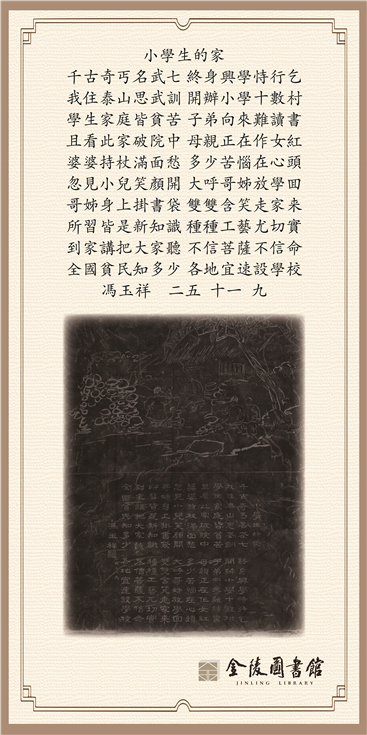 小學生的家
千古奇丐名武七 終身興學恃行乞
我住泰山思武訓 開辦小學十數村
學生家庭皆貧苦 子弟向來難讀書
且看此家破院中 母親正在作女紅
婆婆持杖滿面愁 多少苦惱在心頭
忽見小兒笑顏開 大呼哥姊放學回
哥姊身上掛書袋 雙雙含笑走家來
所習皆是新知識 種種工藝尤切實
到家講把大家聽 不信菩薩不信命
全國貧民知多少 各地宜速設學校
馮玉祥 二五 十一 九
金陵圖書館
JINLING LIBRARY